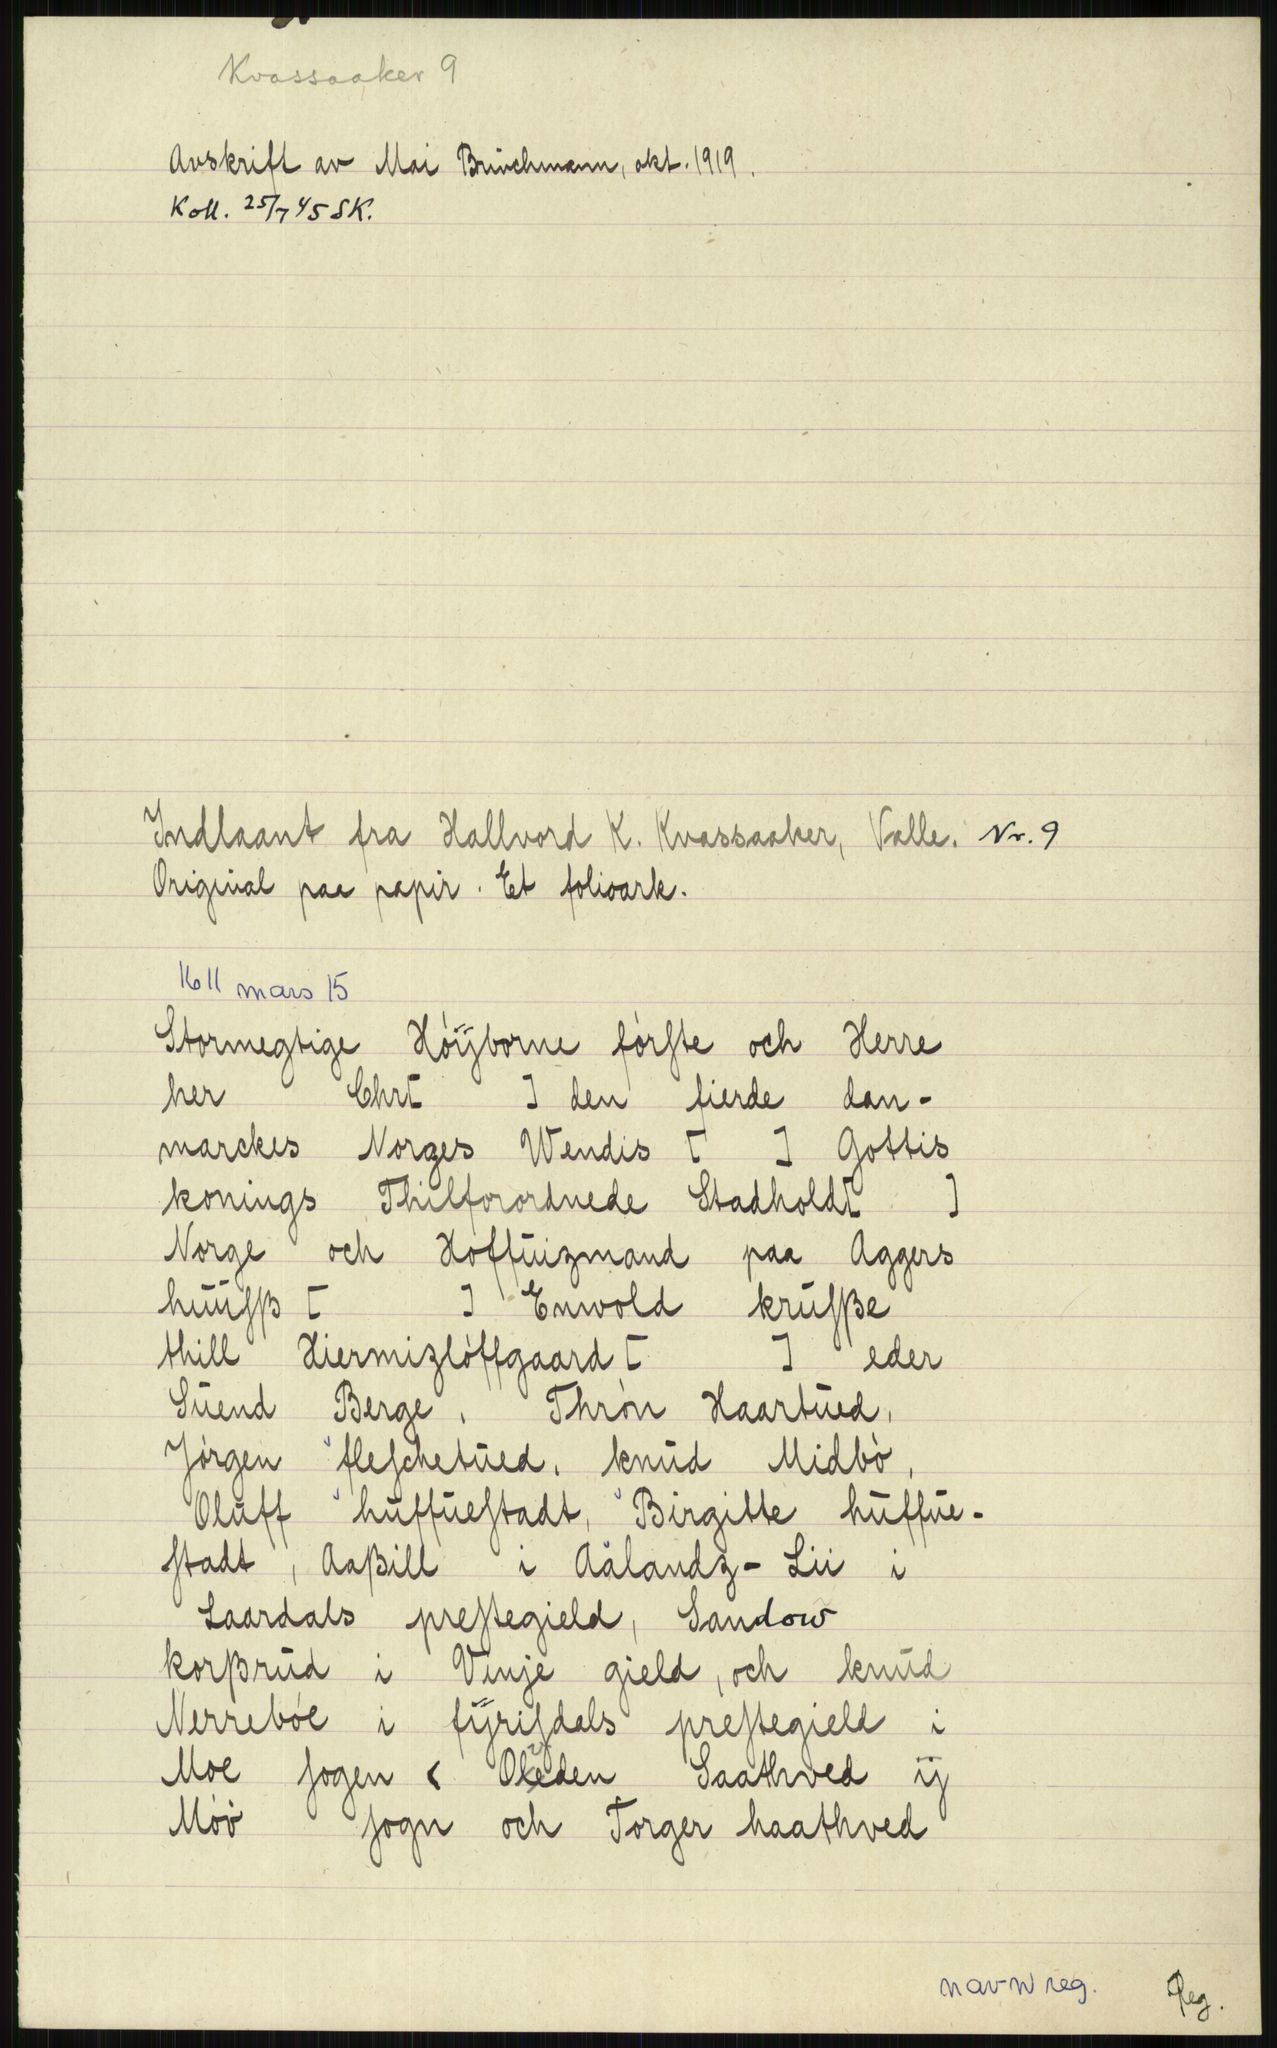 Kvassaaker 9
Avskrift av Mai Bruchmann, okt. 1919.
Koll. 25/7 45 SK.
Indlaant fra Hallvord K. Kvassaaker, Valle. Nr. 9
Original paa papir. Et folioark.
1611 mars 15
Stormegtige Höÿborne förste och Herre
her Chr[ ] den fierde dan-
marckes Norges Wendis [ ] Gottis
konings Thilforordnede Stadhold[ ]
Norge och Höffuizmand paa Aggers
huusß [ ] Enwold krusße
thill Hiermizlöffgaard [ ] eder
Suend Berge, Thrön Haartued,
Jörgen fleschetued, knud Midbö,
Oluff huffuestadt, Birgitte huffue-
stadt, Aaßill i Aålandz-Lii i
Laardals prestegield, Sandow
korßrud i Vinje gield, och knud
Nerreböe i fÿrisdals prestegield i
Moe sogen Saathved ij
Möö sogn och Torger haathved
navnreg. Reg.